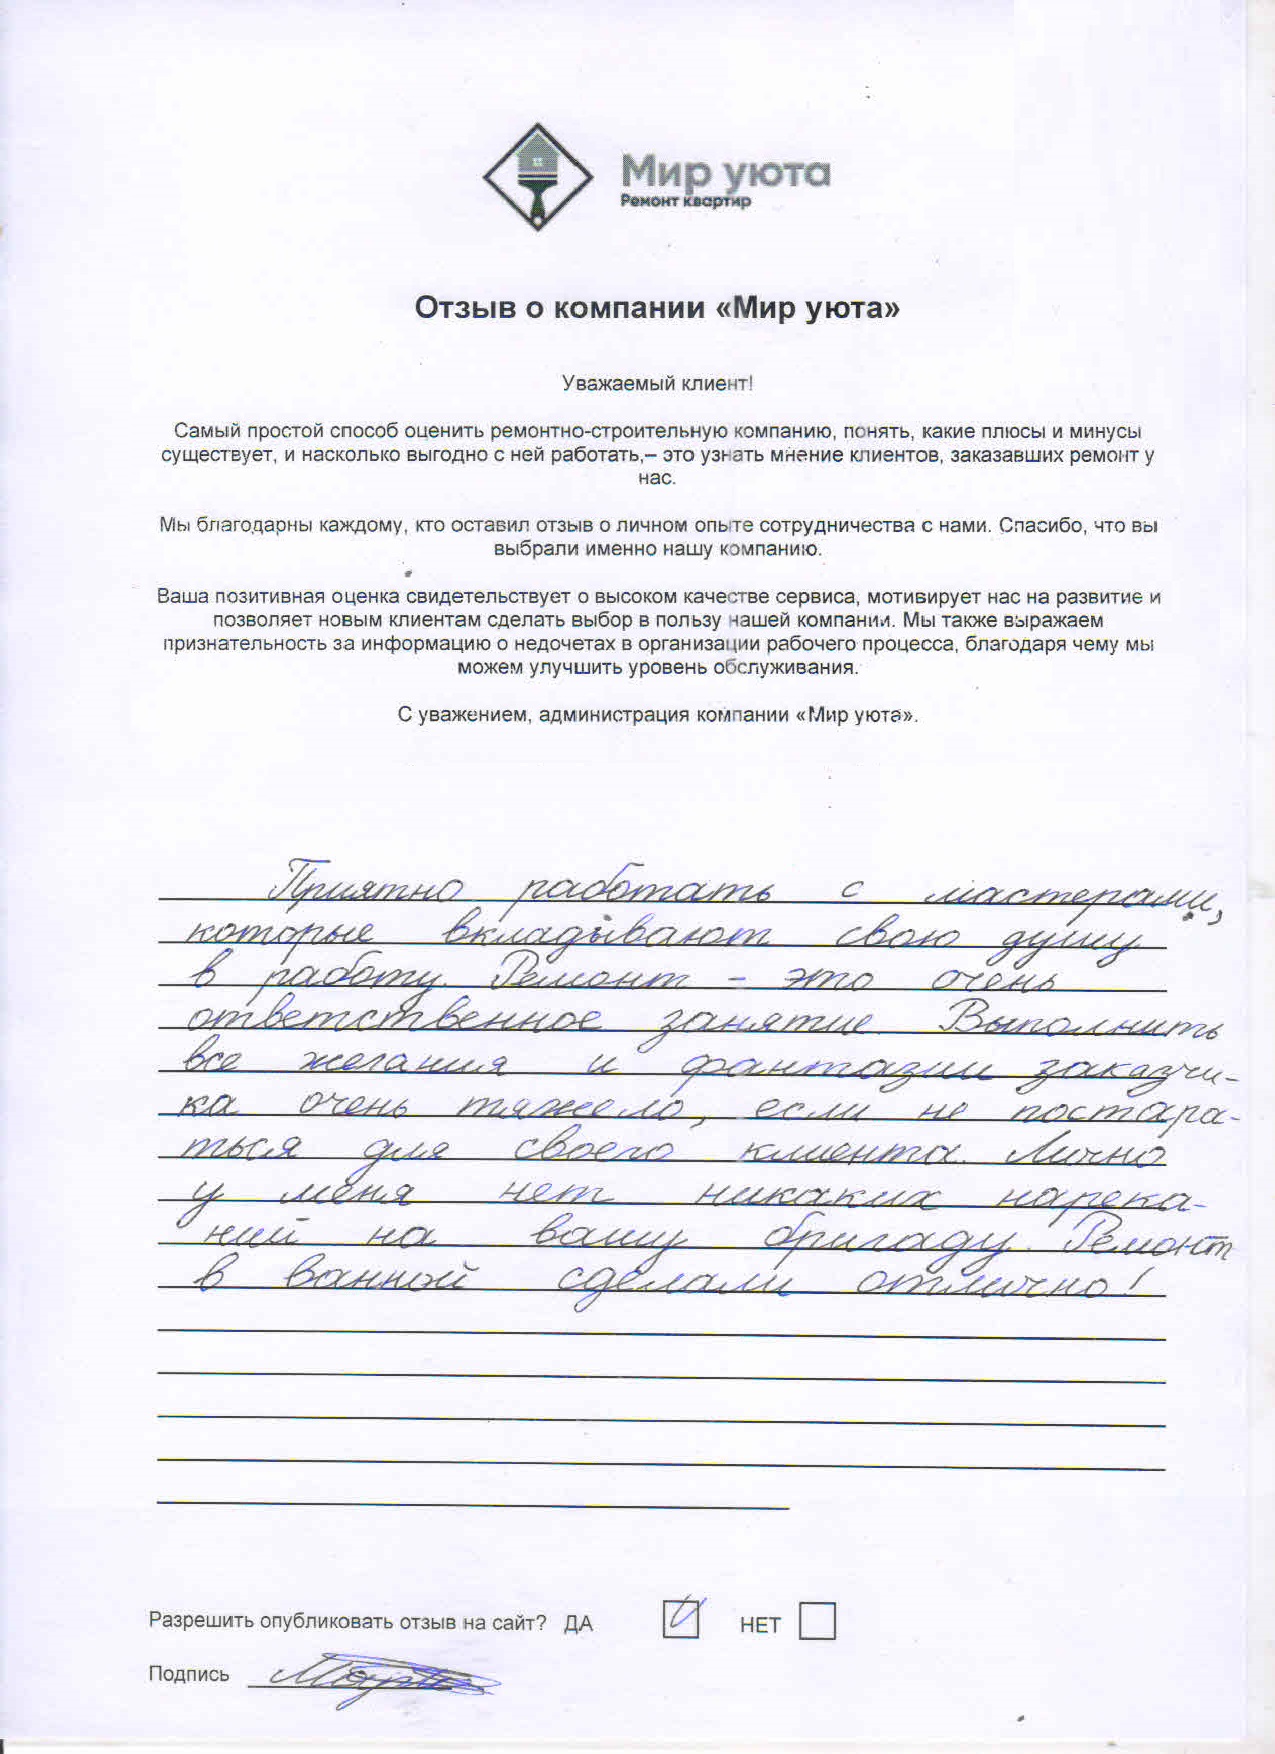 Мир уюта
Ремонт квартир
Отзыв о компании «Мир уюта»
Уважаемый клиент!
Самый простой способ оценить ремонтно-строительную компанию, понять, какие плюсы и минусы
существует, и насколько выгодно с ней работать,– это узнать мнение клиентов, заказавших ремонт у
нас.
Мы благодарны каждому, кто оставил отзыв о личном опыте сотрудничества с нами. Спасибо, что вы
выбрали именно нашу компанию.
Ваша позитивная оценка свидетельствует о высоком качестве сервиса, мотивирует нас на развитие и
позволяет новым клиентам сделать выбор в пользу нашей компании. Мы также выражаем
признательность за информацию о недочетах в организации рабочего процесса, благодаря чему мы
можем улучшить уровень обслуживания.
С уважением, администрация компании «Мир уюта».
Приятно работать с мастерами,
которые вкладывают свою душу
в работу. Ремонт - это очень
ответственное занятие. Выполнить
все желания и фантазии заказчи-
ка очень тяжело, если не постара-
ться для своего клиента. Лично
у меня нет никаких нарека-
ний на вашу бригаду. Ремонт
в ванной сделали отлично!
Разрешить опубликовать отзыв на сайт? ДА НЕТ
Подпись